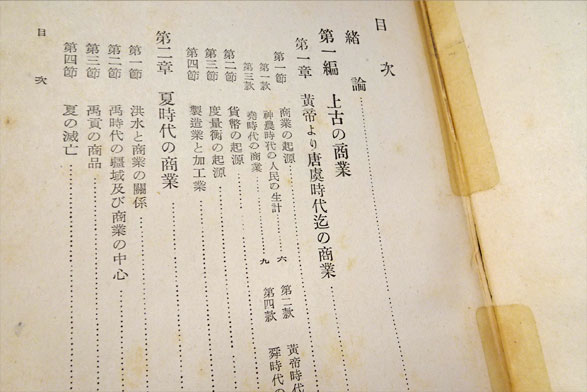 目次
緒論
第一編 上古の商業
第一章 黃帝より唐虞時代迄の商業
第一節 商業の起源
第一款 神農時代の人民の生計 六 第二款 黃帝時代
第三款 堯時代の商業 九 第四款 舜時代の
第二節 貨幣の起源
第三節 度量衡の起源
第四節 製造業と加工業
第二章 夏時代の商業
第一節 洪水と商業の關係
第二節 禹時代の疆域及び商業の中心
第三節 禹貢の商品
第四節 夏の滅亡
目次